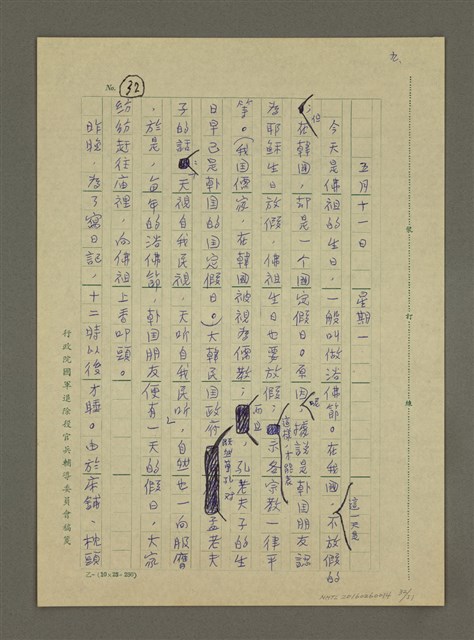 九、
No. 32
五月十一日　星期一
今天是佛祖的生日，一般叫做浴佛節。在我國，這一天是不放假的
；但在韓國，却是一個國定假日。原因呢，據說是韓国朋友認
為耶穌生日放假，佛祖生日也要放假；這樣，才能表示各宗教一律平
等。（我国儒家，在韓國被視為儒教；而且，孔老夫子的生
日早己是韩国的国定假日。）大韓民国政府既然尊孔，对孟老夫
子的話：天視自我民視，天听自我民听，自然也一向服膺
，於是，每年的浴佛節，韓国朋友便有一天的假日，大家
紛紛赶往庙裡，向佛祖上香叩頭。
昨晚，為了寫日記，十二時以後才睡。由於床舖、枕頭
行政院國軍退除役官兵輔導委員會稿箋
裝訂線
乙-(10×25=250)
NMTL 20160260014